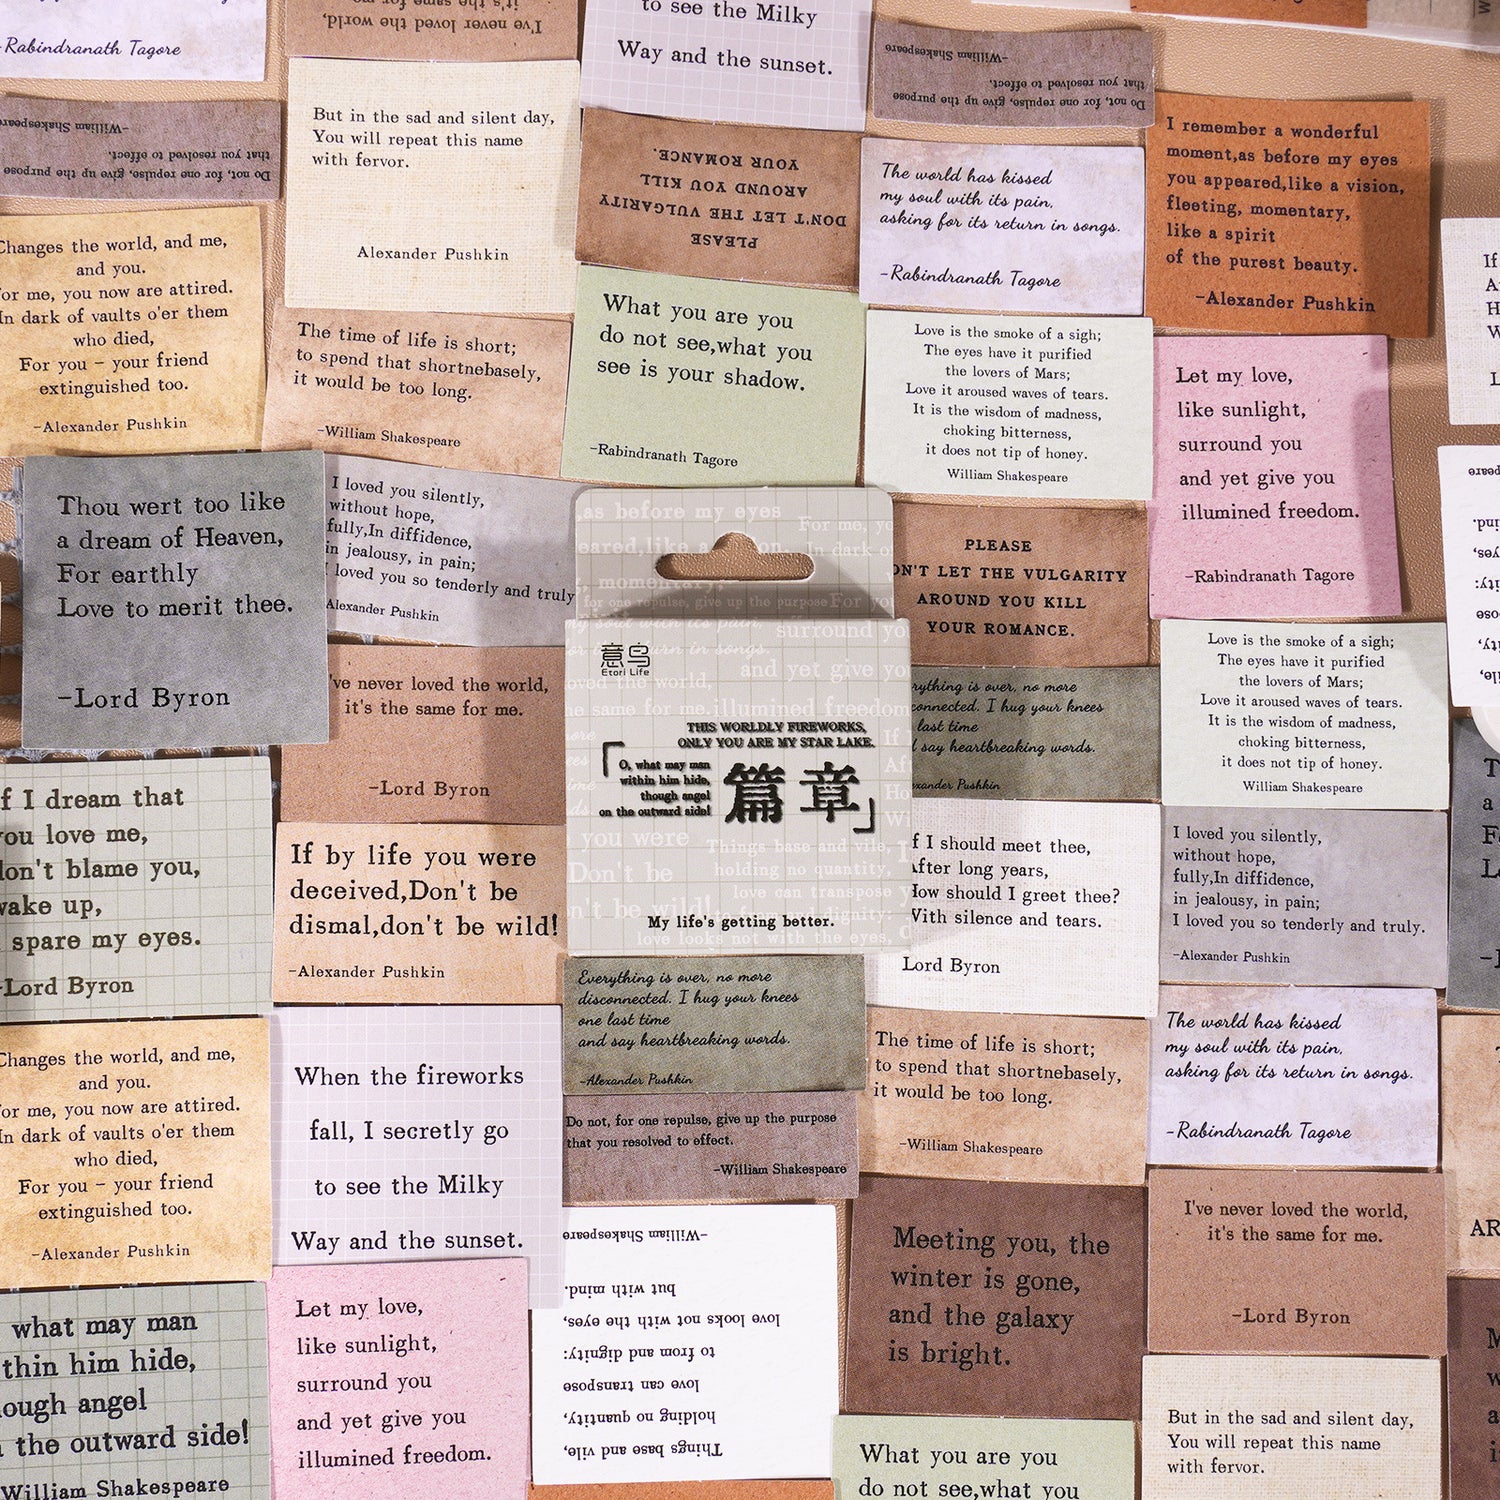 -Rabindranath Tagore
I've never loved the world,
it's the same for me.
to see the Milky
Way and the sunset.
Do not, for one repulse, give up the purpose
that you resolved to effect.
-William Shakespeare
Do not, for one repulse, give up the purpose
that you resolved to effect.
-William Shakespeare
But in the sad and silent day,
You will repeat this name
with fervor.
Alexander Pushkin
PLEASE
DON'T LET THE VULGARITY
AROUND YOU KILL
YOUR ROMANCE.
The world has kissed
my soul with its pain,
asking for its return in songs.
-Rabindranath Tagore
I remember a wonderful
moment,as before my eyes
you appeared,like a vision,
fleeting, momentary,
like a spirit
of the purest beauty.
-Alexander Pushkin
Changes the world, and me,
and you.
for me, you now are attired.
In dark of vaults o'er them
who died,
For you - your friend
extinguished too.
-Alexander Pushkin
The time of life is short;
to spend that shortnebasely,
it would be too long.
-William Shakespeare
What you are you
do not see,what you
see is your shadow.
-Rabindranath Tagore
Love is the smoke of a sigh;
The eyes have it purified
the lovers of Mars;
Love it aroused waves of tears.
It is the wisdom of madness,
choking bitterness,
it does not tip of honey.
William Shakespeare
Let my love,
like sunlight,
surround you
and yet give you
illumined freedom.
-Rabindranath Tagore
If
Thou wert too like
a dream of Heaven,
For earthly
Love to merit thee.
-Lord Byron
I loved you silently,
without hope,
fully,In diffidence,
in jealousy, in pain;
I loved you so tenderly and truly
Alexander Pushkin
,as before my eyes
For me, yo
eared,like a
In dark o
, momentary
for one repulse, give up the purpose For yo
my soul with its pain,
surround you
urn in songs.
and yet give you
loved the world,
same for me. illumined freedom
意鸟
Etori Life
THIS WORLDLY FIREWORKS,
ONLY YOU ARE MY STAR LAKE.
「O, what may man
within him hide,
though angel
on the outward side!
篇章」
you were
Things base and vile,
Don't be
holding no quantity,
love can transpose
n't be wild!
dignity:
My life's getting better.
love looks not with the eyes,
PLEASE
ON'T LET THE VULGARITY
AROUND YOU KILL
YOUR ROMANCE.
've never loved the world,
it's the same for me.
-Lord Byron
rything is over, no more
connected. I hug your knees
last time
say heartbreaking words.
exander Pushkin
Love is the smoke of a sigh;
The eyes have it purified
the lovers of Mars;
Love it aroused waves of tears.
It is the wisdom of madness,
choking bitterness,
it does not tip of honey.
William Shakespeare
f I dream that
you love me,
don't blame you,
wake up,
spare my eyes.
-Lord Byron
If by life you were
deceived,Don't be
dismal,don't be wild!
-Alexander Pushkin
f I should meet thee,
After long years,
How should I greet thee?
With silence and tears.
Lord Byron
I loved you silently,
without hope,
fully,In diffidence,
in jealousy, in pain;
I loved you so tenderly and truly.
-Alexander Pushkin
Everything is over, no more
disconnected. I hug your knees
one last time
and say heartbreaking words.
-Alexander Pushkin
Changes the world, and me,
and you.
for me, you now are attired.
In dark of vaults o'er them
who died,
For you - your friend
extinguished too.
-Alexander Pushkin
When the fireworks
fall, I secretly go
to see the Milky
Way and the sunset.
Do not, for one repulse, give up the purpose
that you resolved to effect.
-William Shakespeare
The time of life is short;
to spend that shortnebasely,
it would be too long.
-William Shakespeare
The world has kissed
my soul with its pain,
asking for its return in songs.
-Rabindranath Tagore
what may man
thin him hide,
ough angel
the outward side!
William Shakespeare
Let my love,
like sunlight,
surround you
and yet give you
illumined freedom.
Things base and vile,
holding no quantity,
love can transpose
to from and dignity:
love looks not with the eyes,
but with mind.
-William Shakespeare
Meeting you, the
winter is gone,
and the galaxy
is bright.
I've never loved the world,
it's the same for me.
-Lord Byron
AR
What you are you
do not see,what you
But in the sad and silent day,
You will repeat this name
with fervor.